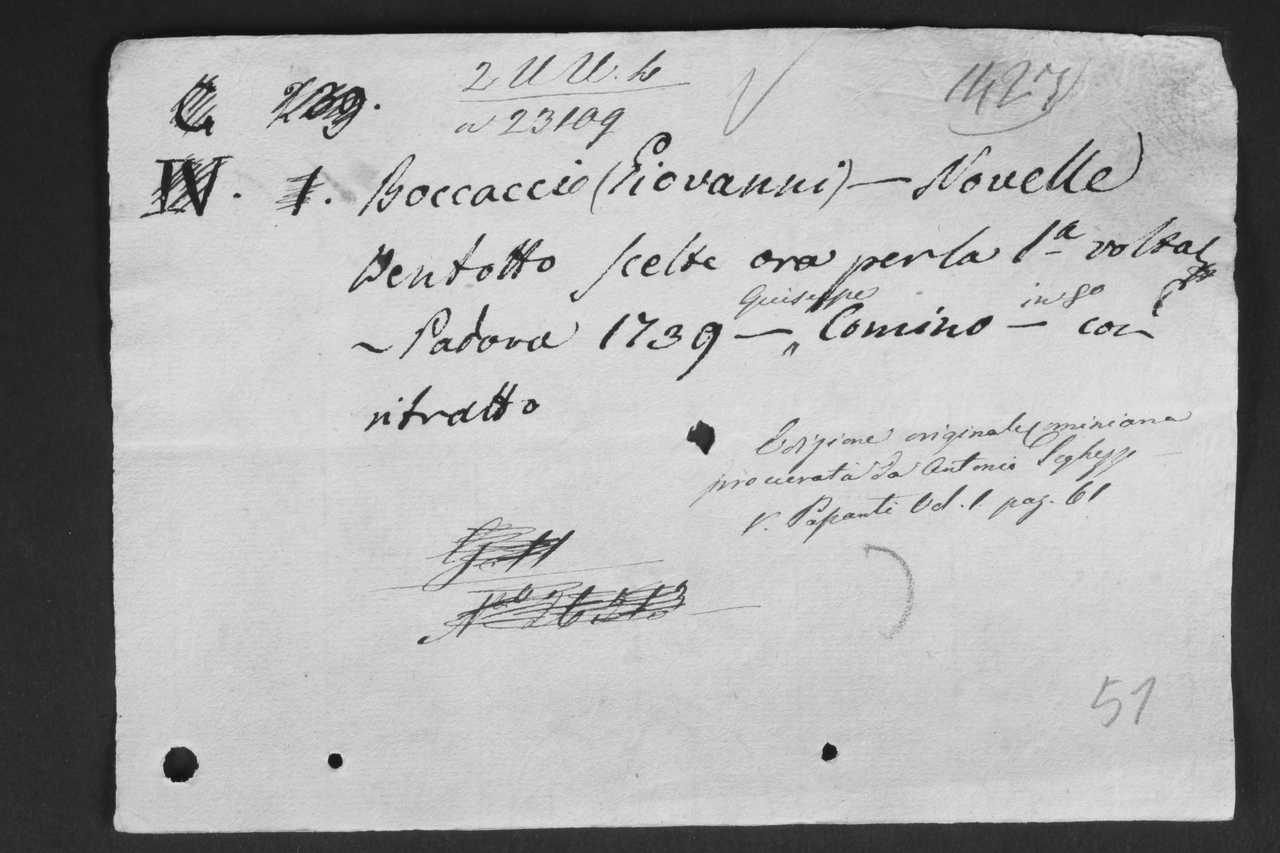 C. 239. 2 U U. h
a 23109
IV. 1. Boccaccio (Giovanni) — Novelle
Ventotto scelte ora per la 1ª volta
~ Padova 1739 — Giuseppe Comino — in 8º con
ritratto
Edizione originale Cominiana
procurata da Antonio Seghezzi
V. Papanti Vol. 1 pag. 61
Nº 26513
51